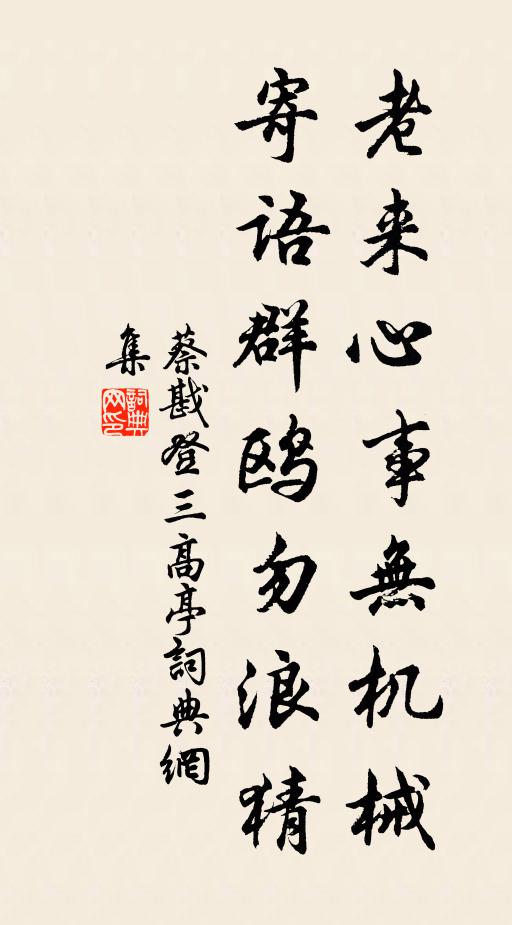 老来心事無机械
寄语群鸥勿浪猜
蔡戡登三高亭詞典網
集
詞典
网印